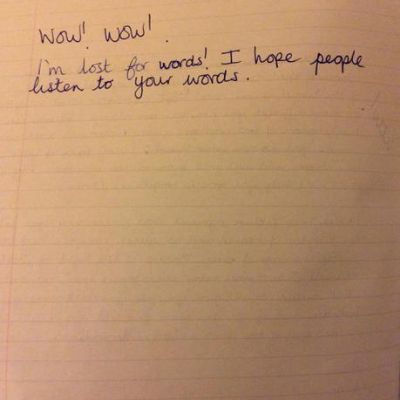 Wow! Wow!
I'm lost for words! I hope people
listen to your words.